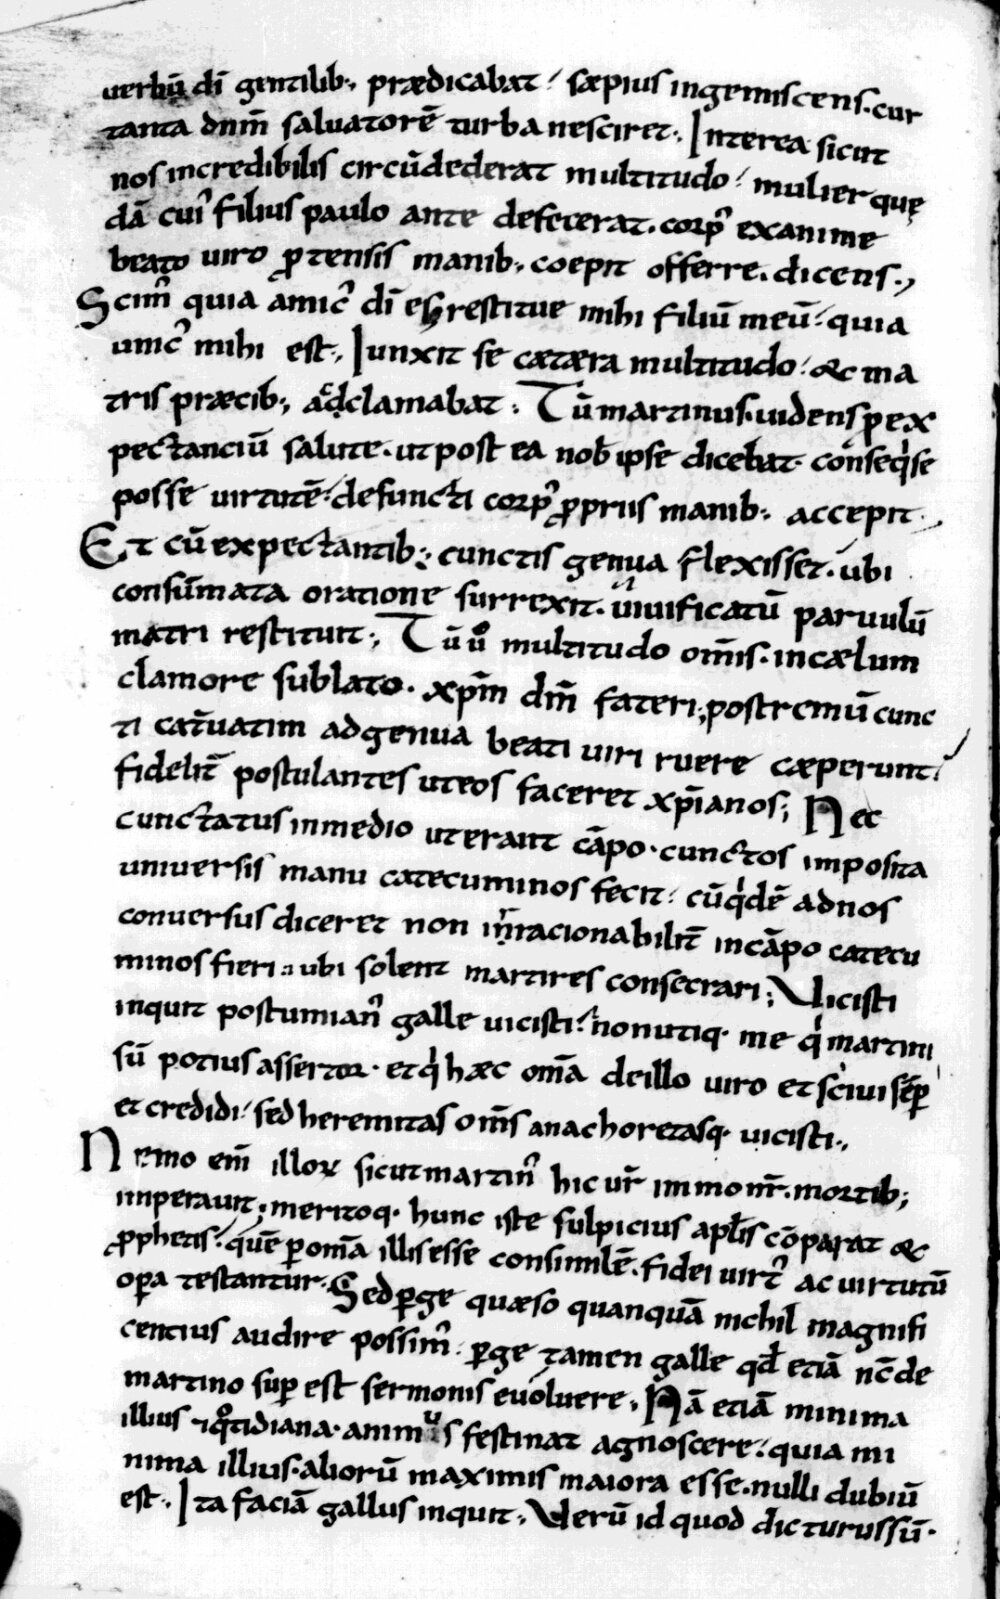 uerbū dī gentilib;, prædicabat / sæpius ingemiscens. cur
tanta dn̄m saluatorē turba nesciret;. Interea sicut
nos incredibilis circūdederat multitudo / mulier quę
dā cui' filius paulo ante defecerat. corp' exanime
beato uiro ꝓtensis manib;. coepit offerre. dicens.,
Scim' quia amic' dī es / restitue mihi filiū meū / quia
unic' mihi est;. Iunxit se cætæra multitudo / & ma
tris præcib;, adclamabat; Tū martinus. uidens ꝓ ex
pectanciū salute. ut post ea nob̄ ipse dicebat. conseq̍ se
posse uirtutē / defuncti corp' ꝓpriis manib;. accepit.,
Et cū expectantib;. cunctis genua flexisset. ubi
consūmata oratione surrexit. uiuificatū paruulū
matri restituit; Tū ů multitudo om̄is. in cælum
clamore sublato. xp̄m dm̄ fateri; postremū cunc
ti cat̄uatim ad genua beati uiri ruere cæperunt /
fidelit̄ postulantes ut eos faceret xp̄ianos; Nec
cunctatus in medio ut erant cāpo. cunctos imposita
uniuersis manu catecuminos fecit / cū q̍dē ad nos
conuersus diceret non inracionabilit̄ in cāpo catecu
minos fieri. ubi solent martires consecrari; Vicisti
inquit postumian' galle uicisti / non utiq. me q̍ martini
sū potius assertor. et q̍ hæc om̄a de illo uiro et sciui sēp̱
et credidi / sed heremitas om̄s anachoretasq. uicisti.,
Nemo em̄ illoꝝ sicut martin' hic ur̄ immo nr̄. mortib;
imperauit; meritoq. hunc iste sulpicius apl̄is cōparat &
ꝓphetis / quē ꝑ om̄a illis esse consimilē. fidei uirt' ac uirtutū
oꝑa testantur. Sed ꝑge quæso quanquā nichil magnifi
centius audire possim'. ꝑge tamen galle qd̄ etiā nc̄ de
martino suꝑ est sermonis euoluere. Nā etiā minima
illius ⁊ q̊tidiana. animus festinat agnoscere / quia mi
nima illius. aliorū maximis maiora esse. nulli dubiū
est;. Ita faciā gallus inquit;. Verū id quod dicturus sū.